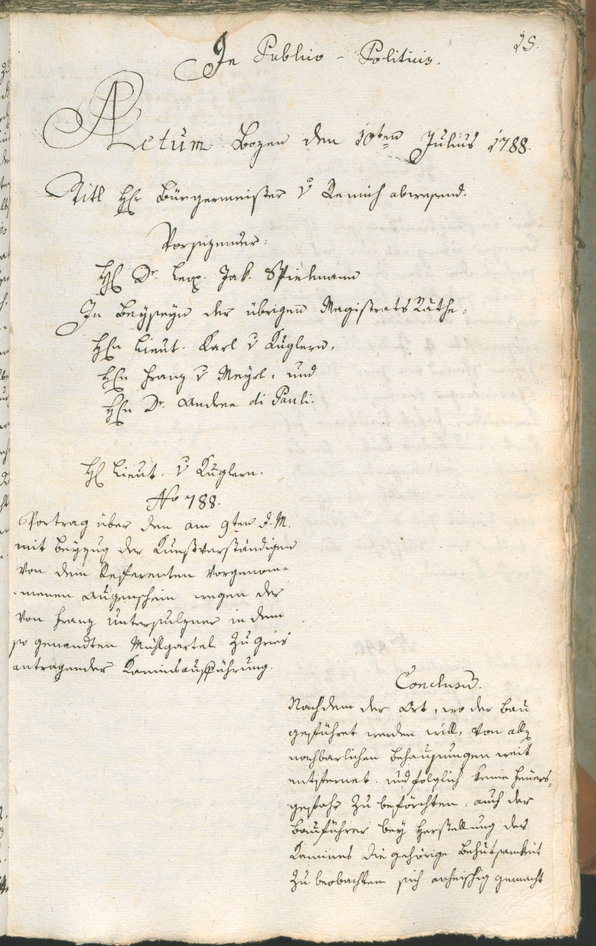 25.
In Publico-Politicis.
Actum Bozen den 10ten Julius 1788.
Titl Hr Bürgermeister v Remich abwesend.
Vorsizender:
H Dr. Leop. Jak. Spielmann
In Beyseyn der übrigen Magistrats Räthe,
Hrn Lieut. Karl v Kuglern.
Hrn Franz v Meyrl, und
Hrn Dr. Andree di Pauli.
H Lieut. v Kuglern.
No 788.
Vortrag über den am 9ten d. M.
mit Beyzug der Kunstverständigen
von dem Referenten vorgenom-
menen Augenschein wegen der
von Franz Unterpulzner in dem
so genandten Mühlgartel zu Gries
antragender Kaminsausführung.
Conclusum.
Nachdem der Ort, wo der Bau
geführet werden will, von all
nachbarlichen Behausungen weit
entfernet, und folglich keine Feuers,
gefahr zu beförchten, auch der
Bauführer bey Herstellung des
Kamines die gehörige Behutsamkeit
zu beobachten sich anheischig gemacht